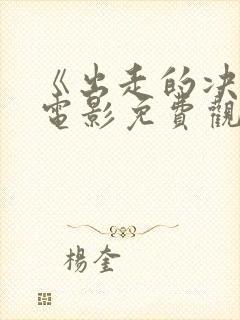 《出走的决
電影免費觀
楊奎